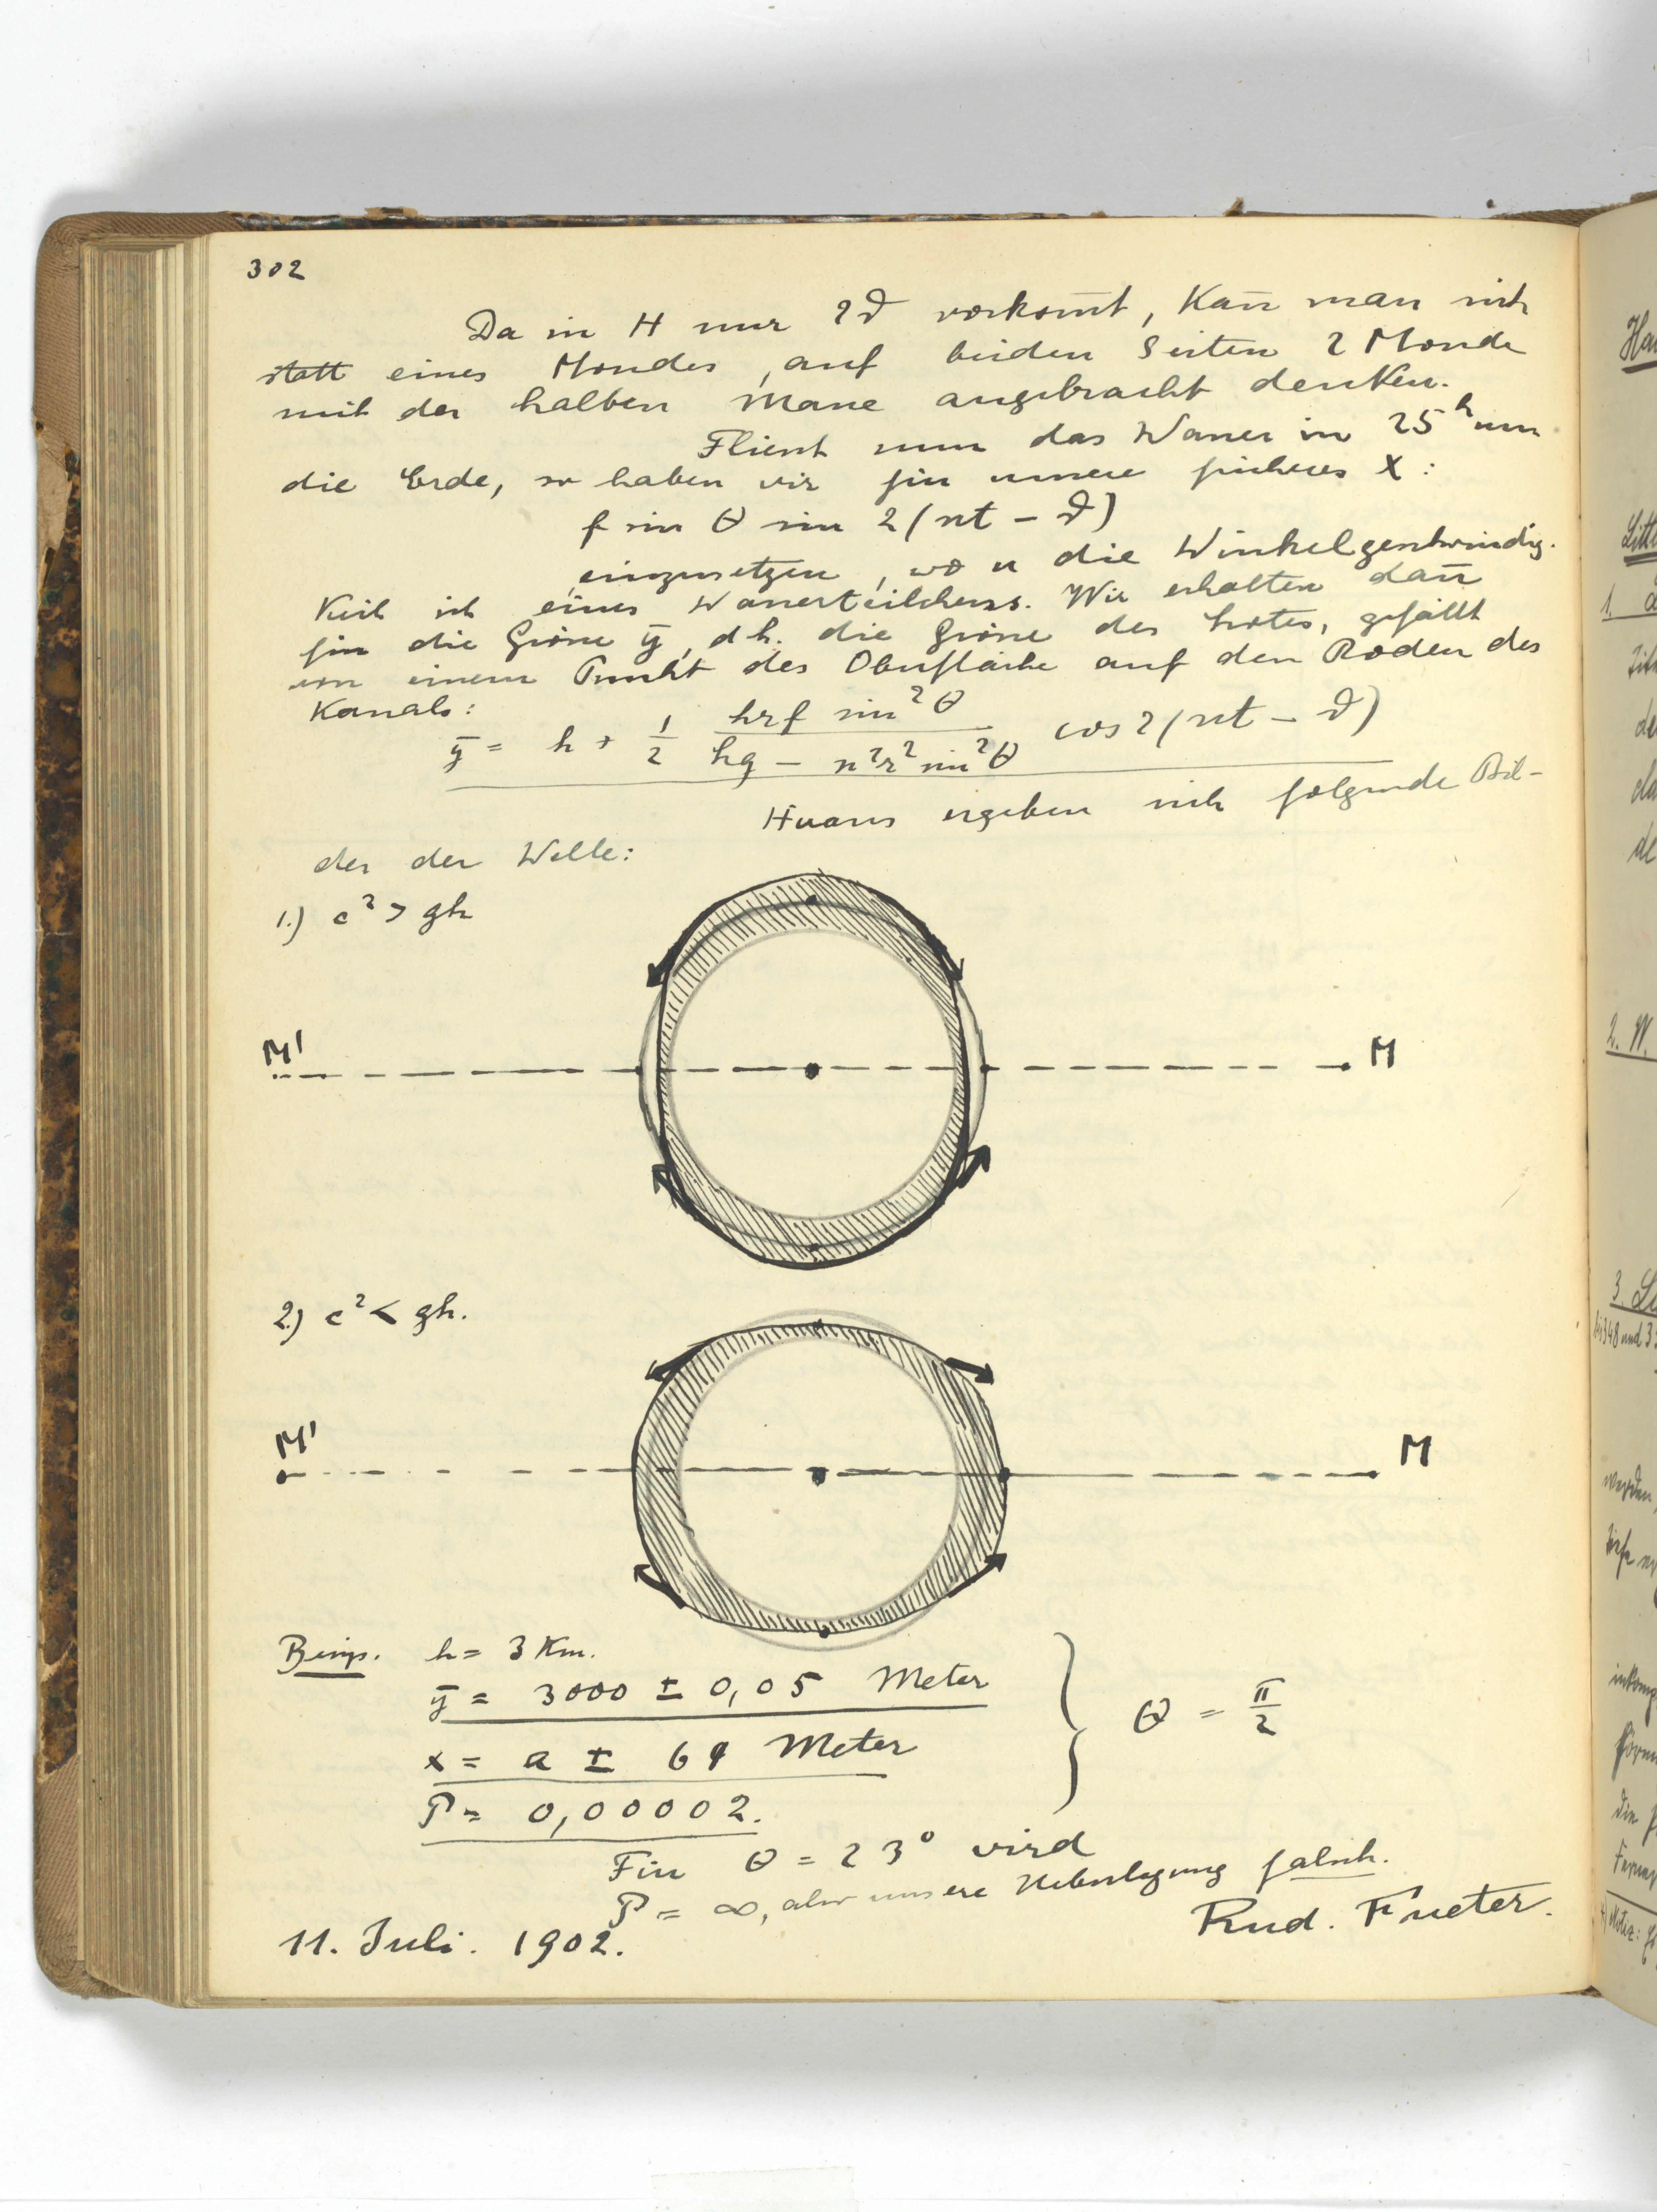 302
Da in H nur 2ϑ vorkom̄t, Kan̄ man sich
statt eines Mondes, auf beiden Seiten 2 Monde
mit der halben Masse angebracht denken.
Fliesst nun das Wasser in 25ʰ um
die Erde, so haben wir für unsere früheres X:
f sin θ sin 2(nt − ϑ)
einzusetzen, wo n die Winkelgeschwindig-
keit ist eines Wasserteilchens. Wir erhalten dan̄
für die Grösse ȳ, d.h. die Grösse des Lotes, gefällt
von einem Punkt des Oberfläche auf den Boden des
Kanals:
ȳ = h + 1/2 hrf sin²θ / (hg − n²r² sin²θ) cos 2(nt − ϑ)
Hieraus ergeben sich folgende Bil-
der der Welle:
1.) c² > gh
M' M
2.) c² < gh.
M' M
Beisp. h = 3 Km.
ȳ = 3000 ± 0,05 Meter
x = a ± 64 Meter
θ = π/2
P = 0,00002.
Für θ = 23° wird
P = ∞, also unsere Ueberlegung falsch.
11. Juli. 1902.
Rud. Fueter.
1.
2. W.
3.
348 und 3
werden,